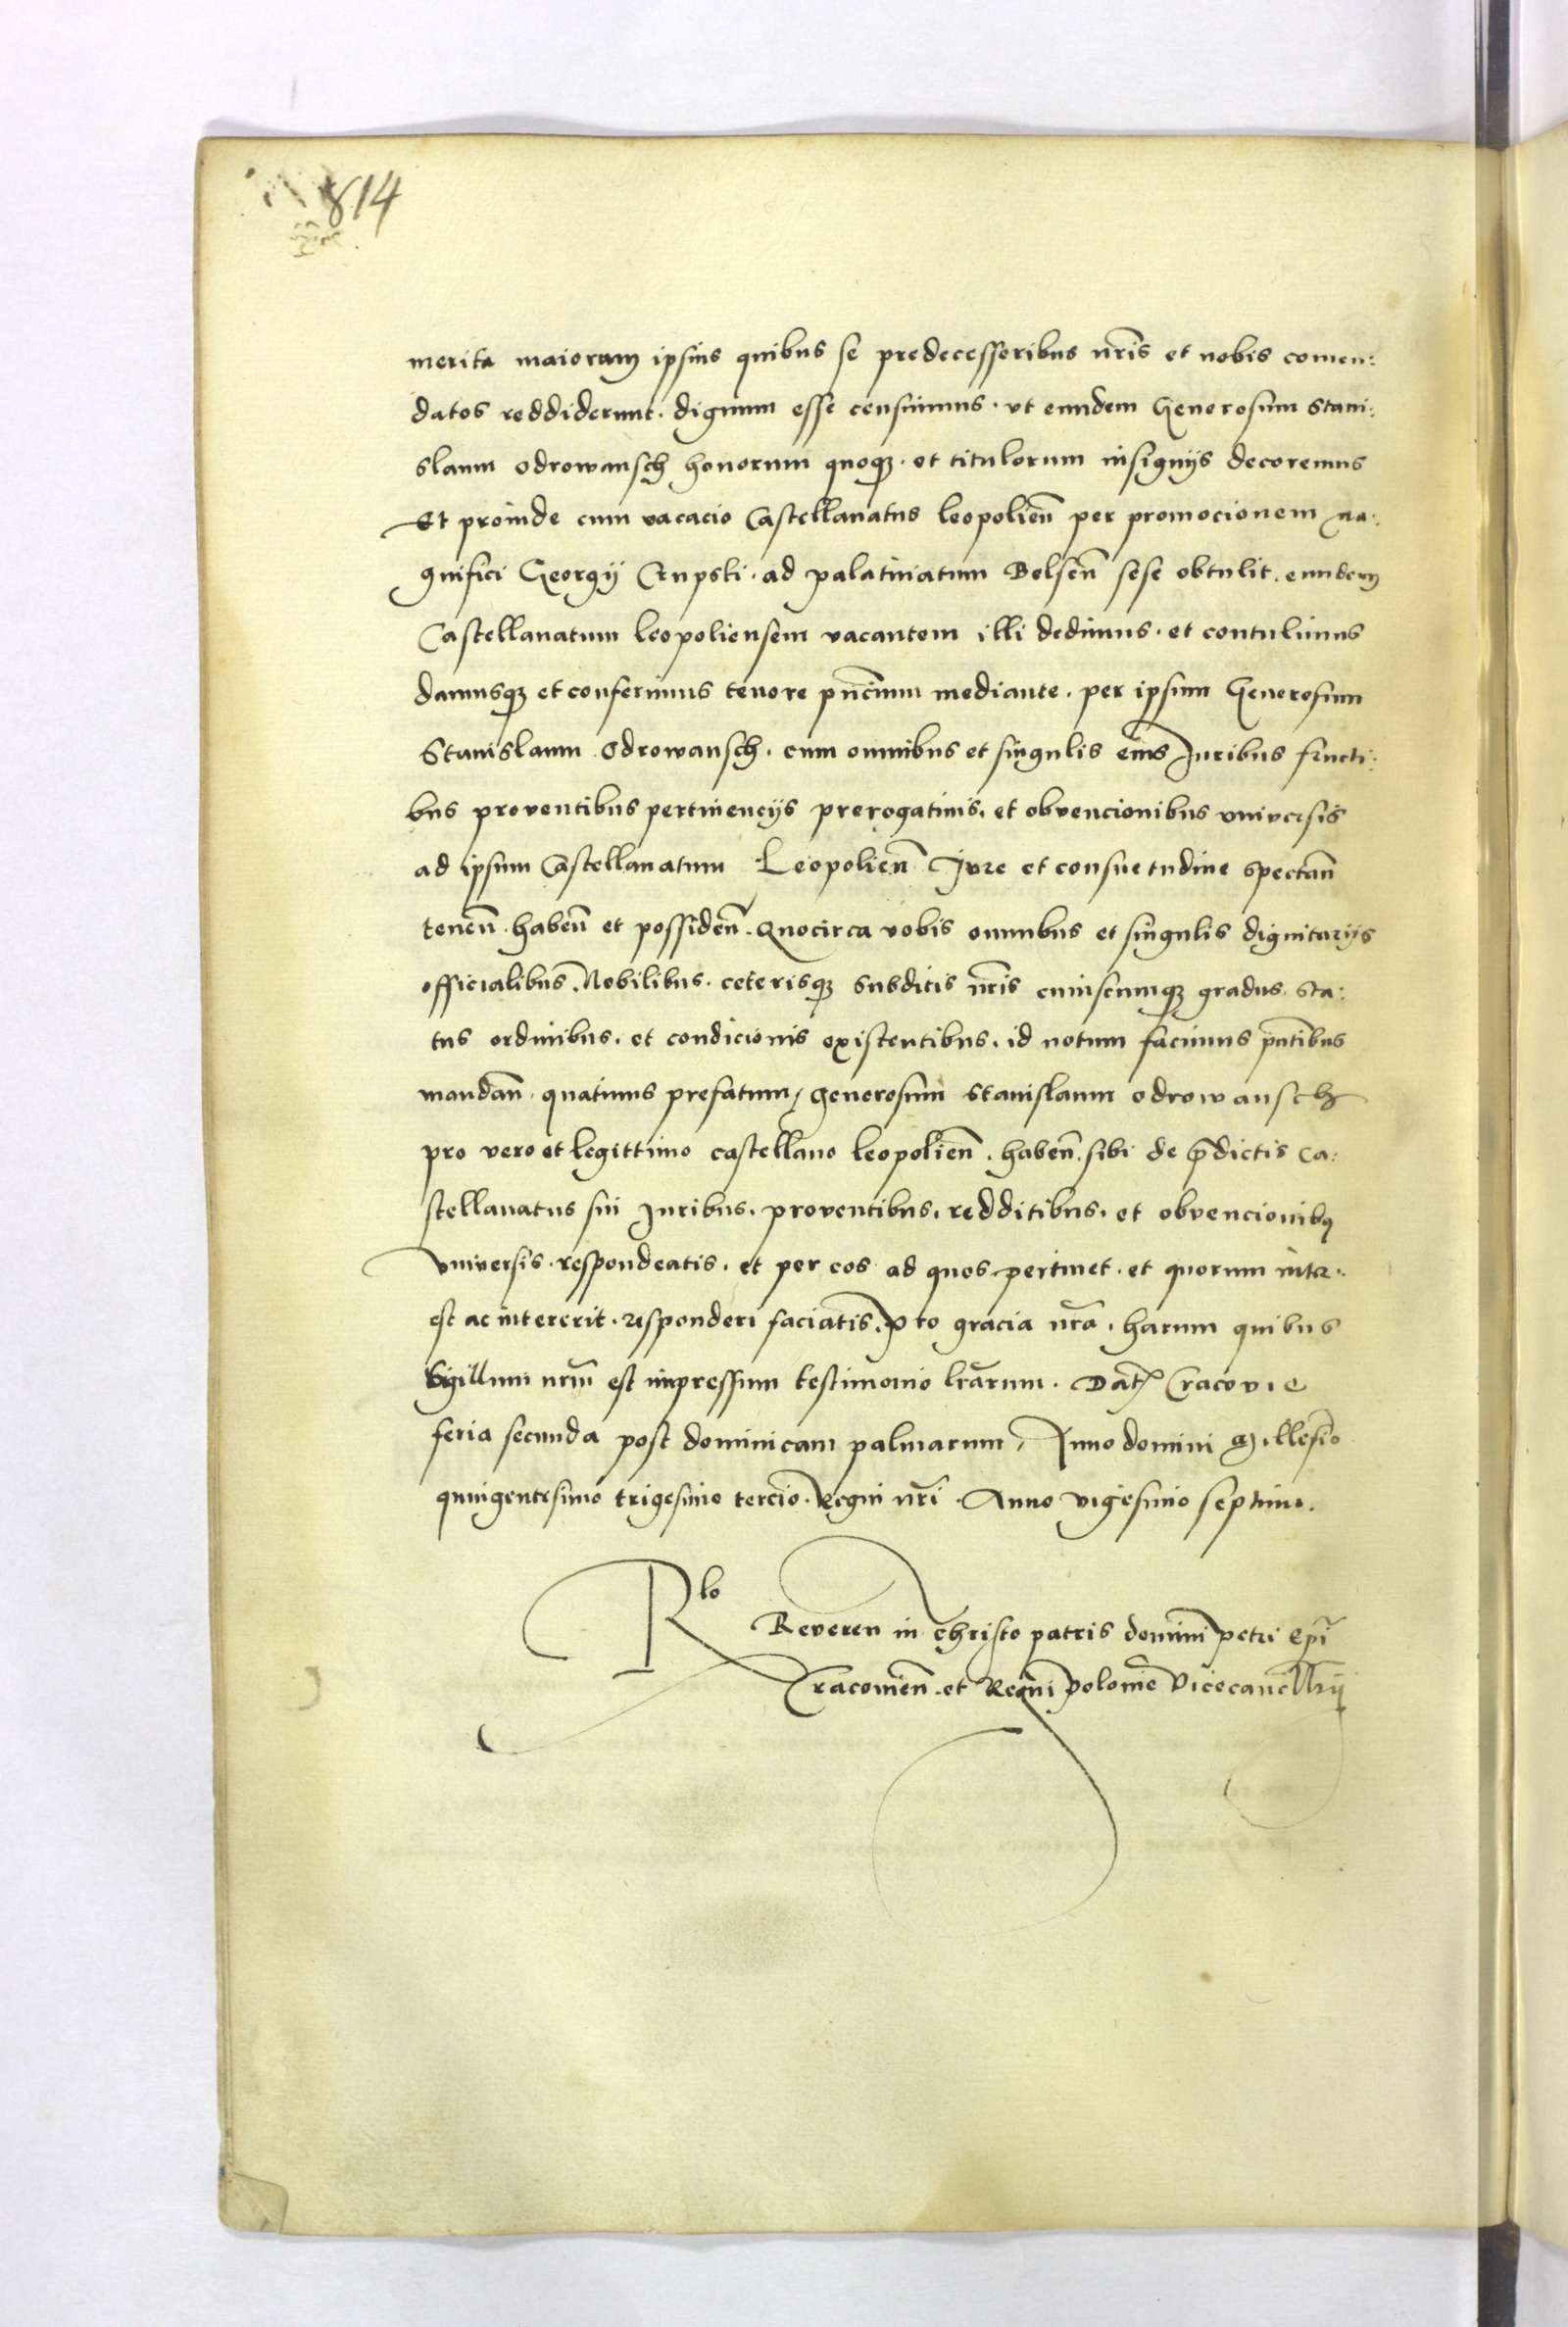 814
merita maiorum ipsius quibus se predecessoribus nr̃is et nobis comen:
datos reddiderunt. dignum esse censuimus. vt eundem Generosum Stani:
slaum odrowansch honorum quoqȝ. et titulorum insignijs decoremus
Et proinde cum vacacio Castellanatus leopolien̄ per promocionem ma:
gnifici Georgij Crupski. ad palatinatum Belsen̄ sese obtulit. eundem
Castellanatum leopoliensem vacantem illi dedimus. et contulimus
damusqȝ et conferimus tenore pn̄cium mediante. per ipsum Generosum
Stanislaum Odrowansch. cum omnibus et singulis eius Juribus fructi:
bus proventibus pertinencijs prerogatiuis. et obvencionibus vniversis
ad ipsum Castellanatum Leopolien̄ Jure et consuetudine spectan̄
tenen̄. haben̄ et possiden̄. Quocirca vobis omnibus et singulis dignitarijs
officialibus. Nobilibus. ceterisqȝ subditis nr̃is cuiuscumqȝ gradus. sta:
tus ordinibus. et condicionis existentibus. id notum facimus pn̄tibus
mandan̄. quatinus prefatum, generosum Stanislaum odrowansch
pro vero et legittimo castellano leopolien̄. haben̄. sibi de p̄dictis ca:
stellanatus sui Juribus. proventibus. redditibus. et obvencionibꝰ
vniversis. respondeatis. et per eos ad quos pertinet. et quorum inter:
est ac intererit. responderi faciatis. p̱ to gracia nr̃a. harum quibus
Sigillum nr̃um est impressum testimonio lr̃arum. Dat̃ Cracovie
feria secunda post dominicam palmarum, Anno domini Millesio
quingentesimo trigesimo tercio. Regni nr̃i. Anno vigesimo septimo.
Rlo Reveren in Christo patris domini petri ep̄i
Cracovien̄. et Regni polonie Vicecancell̄rij